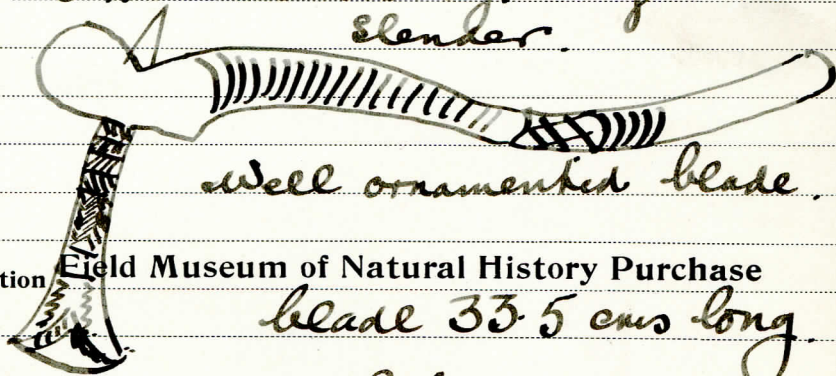 slender.
Well ornamented blade.
tion Field Museum of Natural History Purchase
blade 33.5 cms long.